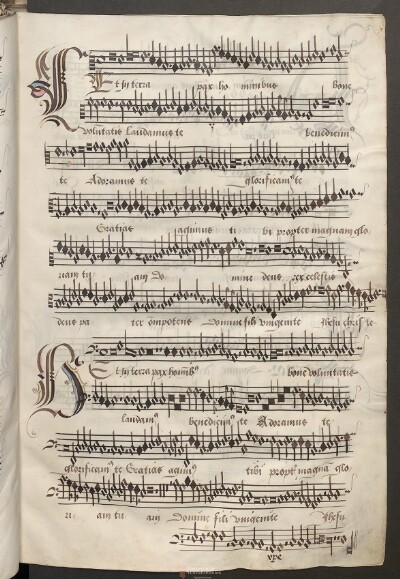 Et in terra pax ho minibus bone
voluntatis Laudamus te benedicim9
te Adoramus te glorificam9 te
Gratias agimus ti bi propter magnam glo
riam tu am Do mine deus rex celestis
deus pa ter omnipotens Domine fili unigenite Jhesu
Et in terra pax homīb9 bone voluntatis
laudam9 benedicim9 te Adoramus te
glorificam9 te Gratias agim9 tibi propt magna glo
ri am tu am Domine fili unigenite Jhesu
xpe